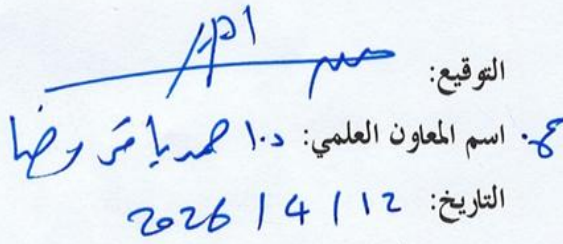 التوقيع:
اسم المعاون العلمي: د. احمد باقر رضا
التاريخ: 2026 / 4 / 12